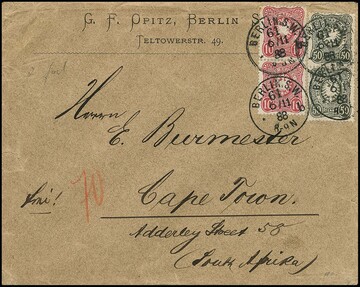 G. F. Opitz, Berlin
Teltowerstr. 49.
BERLIN, S.W.
61
9/11
88
8-9N
BERLIN, S.W.
61
9/11
88
8-9N
50
10
50
Herrn
E. Burmester
frei!
70
Cape Town.
Adderley Street 58
(South Afrika)